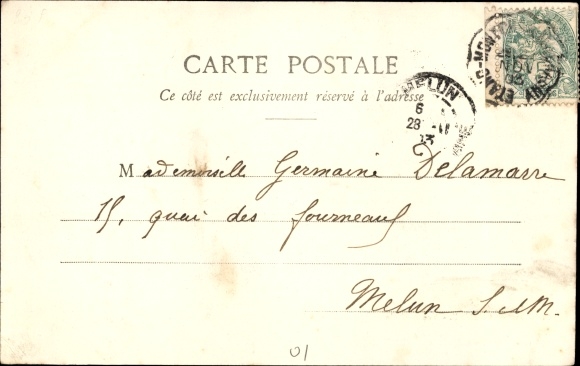 CARTE POSTALE
Ce côté est exclusivement réservé à l'adresse
MELUN
6
28 -11
03
Mademoiselle Germaine Delamarre
15, quai des fourneaux
Melun S. et M.
01